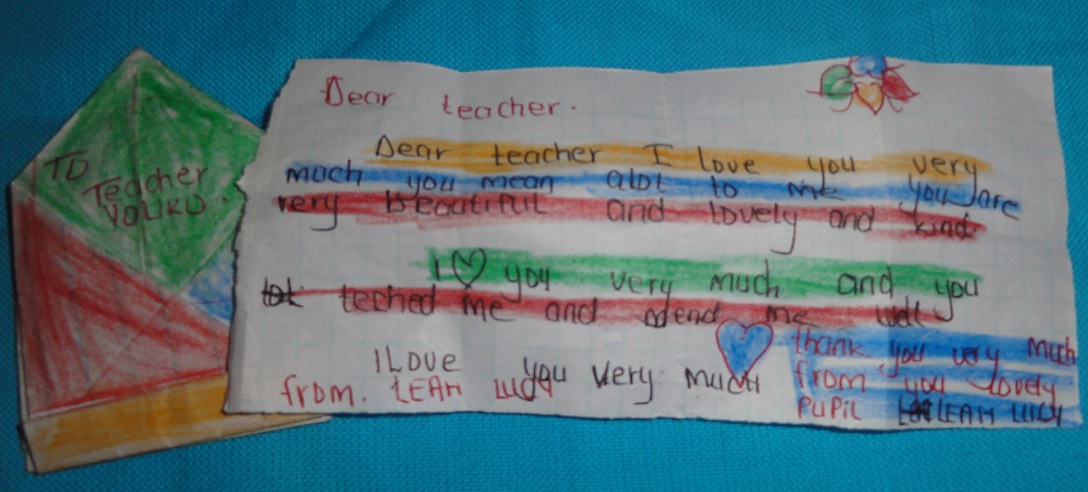 TO
Teacher
YOUKO.
Dear teacher.
Dear teacher I love you very
much you mean alot to me you are
very beautiful and lovely and kind.
I ♡ you very much and you
teched me and mend me well
I LOVE you very much
from. LEAH LUCY
thank you very much
from you lovely
PUPIL LEAH LUCY